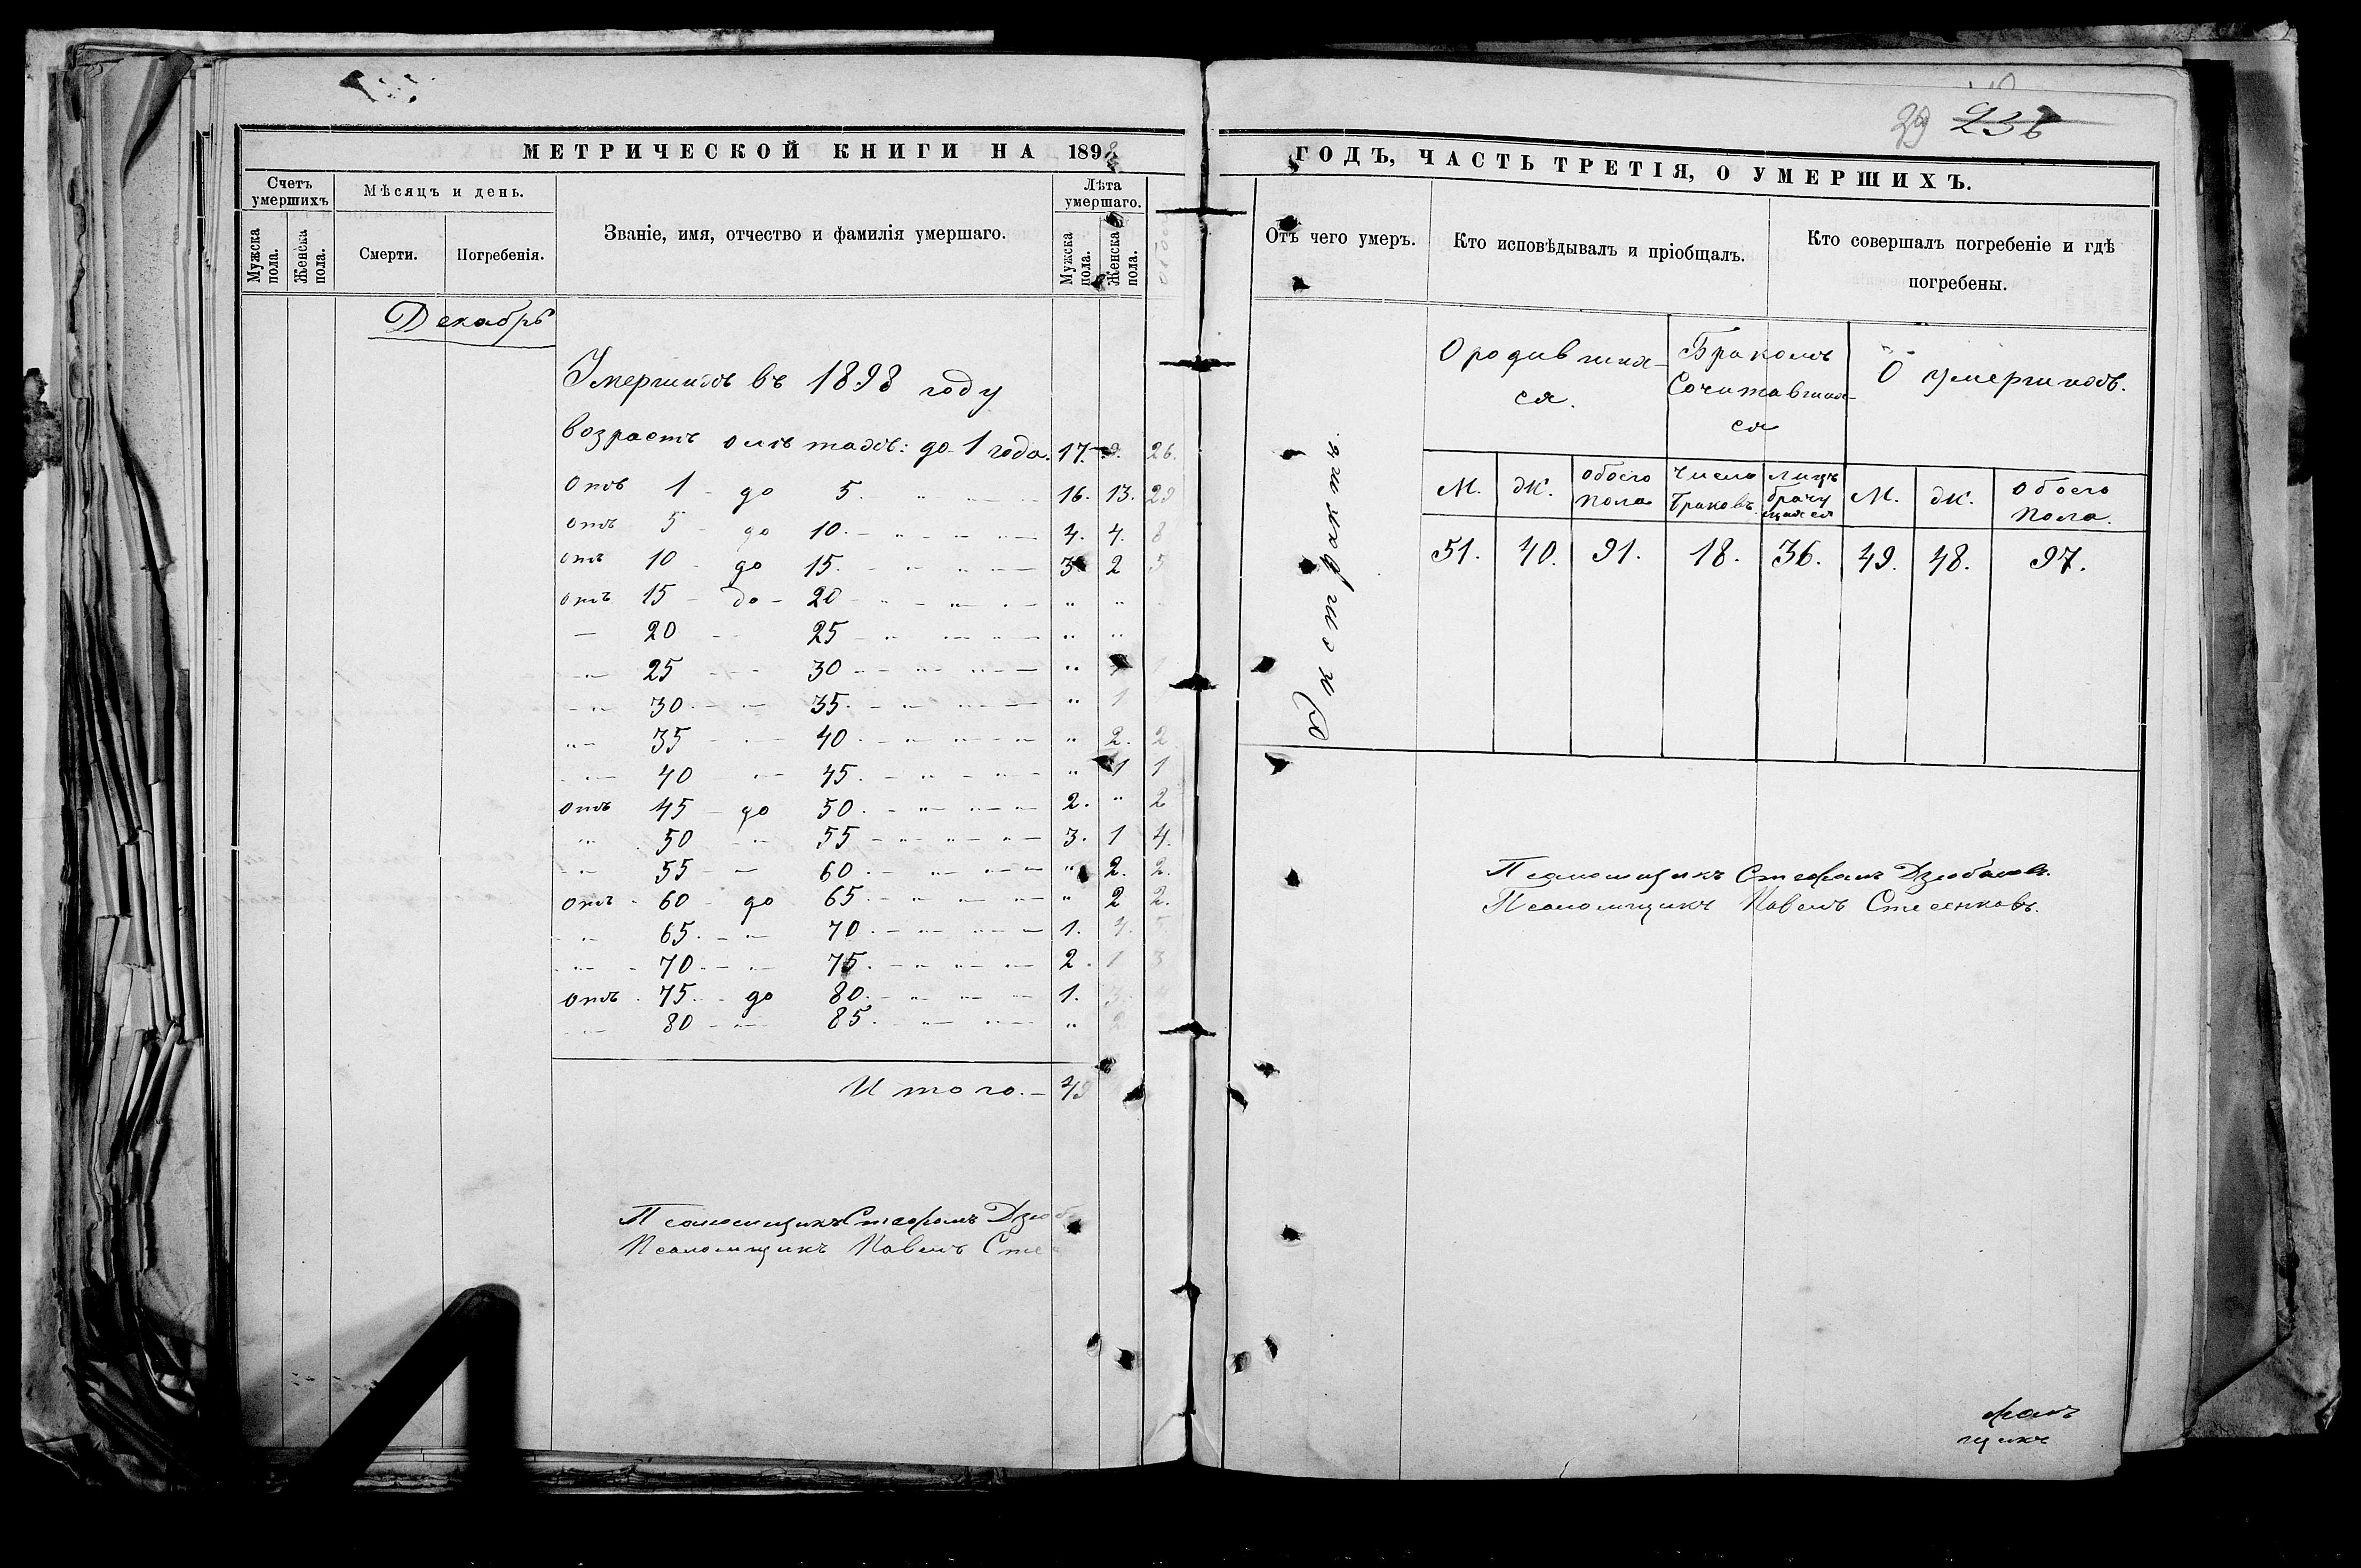 МЕТРИЧЕСКОЙ КНИГИ НА 1898
Счетъ умершихъ
Мѣсяцъ и день.
Званіе, имя, отчество и фамилія умершаго.
Лѣта умершаго.
Мужска пола.
Женска пола.
Смерти.
Погребенія.
Мужска пола.
Женска пола.
Декабрь
Умершихъ въ 1898 году
возрастъ до 1 года. 17. 9. 26.
Отъ 1 до 5. 16. 13. 29
отъ 5 до 10. 4. 4. 8
отъ 10 до 15. 3. 2 5
отъ 15 - до - 20 " "
— 20 25 " "
" 25 30 " 1
" 30 35. " 1
" 35 40. " 2. 2
" 40 45. " 1 1
отъ 45 до 50. 2. " 2
" 50 55 3. 1 4.
" 55 60. " 2. 2.
отъ 60 до 65. " 2 2.
" 65. 70. 1. 4. 5
" 70 75. 2. 1 3
отъ 75. до 80. 1. 3. 4
" 80 85. " 2
Итого. — 49
Псаломщикъ Стефанъ Дзюб
Псаломщикъ Павелъ Сте
29 236
ГОДЪ, ЧАСТЬ ТРЕТІЯ, О УМЕРШИХЪ.
Отъ чего умеръ.
Кто исповѣдывалъ и пріобщалъ.
Кто совершалъ погребеніе и гдѣ
погребены.
Экстрактъ.
О родившихся.
Бракомъ Сочитавшихся
О умершихъ.
М. Ж. обоего пола Число браковъ. Лицъ М. Ж. обоего пола.
51. 40. 91. 18. 36. 49. 48. 97.
Псаломщикъ Стефанъ Дзюбановъ.
Псаломщикъ Павелъ Стесенковъ.
фанъ
щикъ